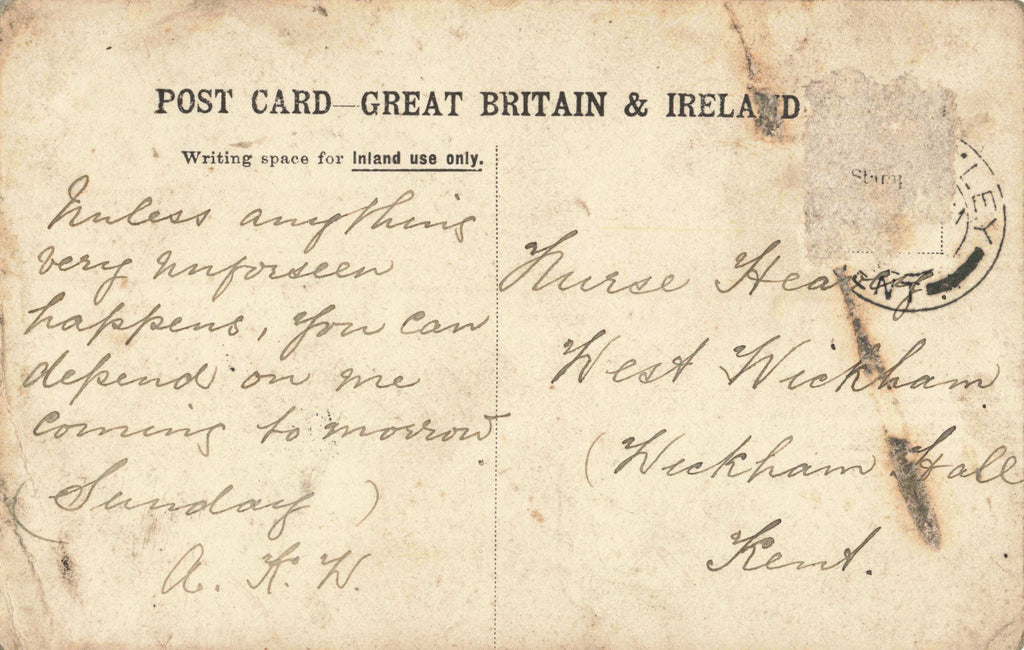 POST CARD—GREAT BRITAIN & IRELAND
Writing space for Inland use only.
Stamp
LEY
Unless anything
very unforseen
happens, you can
depend on me
coming to morrow.
(Sunday)
A. K. W.
Nurse
West Wickham
(Wickham Hall
Kent.